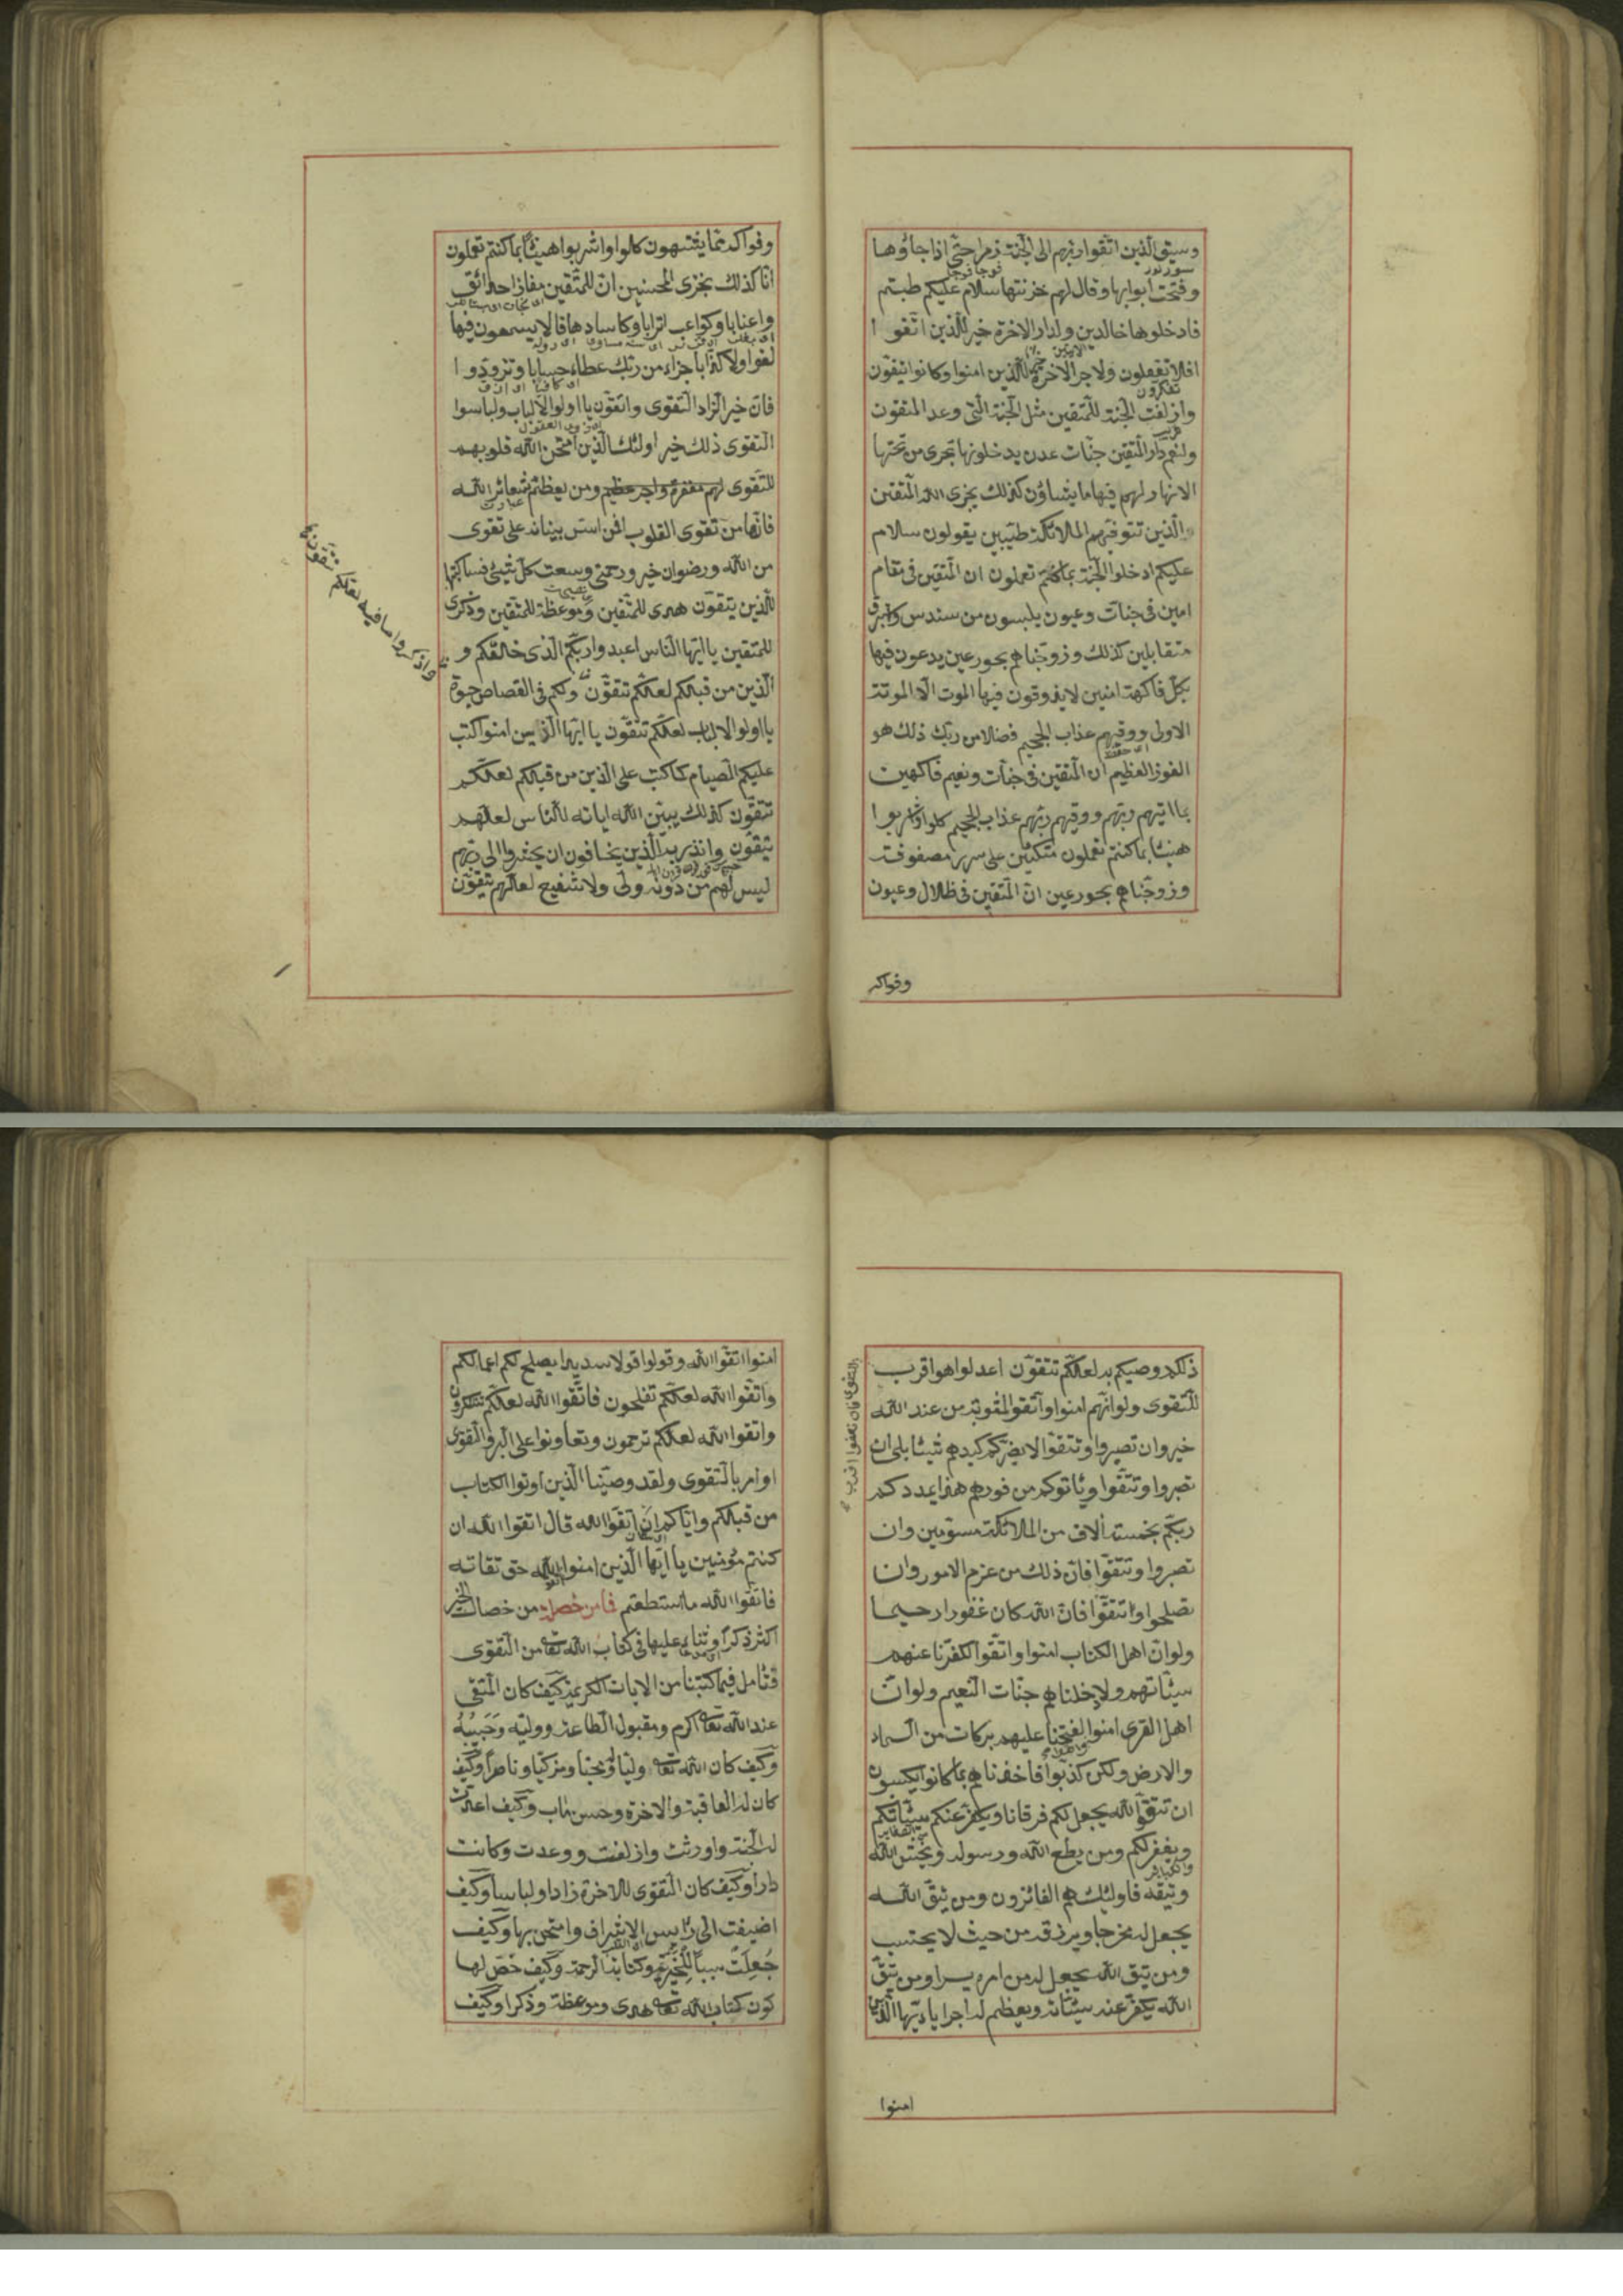 وسيق الذين اتقوا ربهم الى الجنة زمرا حتى اذا جاؤها
وفتحت ابوابها وقال لهم خزنتها سلام عليكم طبتم
فادخلوها خالدين ولدار الاخرة خير للذين اتقوا
افلا تعقلون ولاجر الاخرة خير للذين امنوا وكانوا يتقون
وازلفت الجنة للمتقين مثل الجنة التى وعد المتقون
ولنعم دار المتقين جنات عدن يدخلونها تجرى من تحتها
الانهار لهم فيها ما يشاؤن كذلك يجزى الله المتقين
الذين تتوفيهم الملائكة طيبين يقولون سلام
عليكم ادخلوا الجنة بما كنتم تعملون ان المتقين فى مقام
امين فى جنات وعيون يلبسون من سندس واستبرق
متقابلين كذلك وزوجناهم بحور عين يدعون فيها
بكل فاكهة امنين لا يذوقون فيها الموت الا الموتة
الاولى ووقيهم عذاب الجحيم فضلا من ربك ذلك هو
الفوز العظيم ان المتقين فى جنات ونعيم فاكهين
بما اتيهم ربهم ووقيهم ربهم عذاب الجحيم كلوا واشربوا
هنيئا بما كنتم تعملون متكئين على سرر مصفوفة
وزوجناهم بحور عين ان المتقين فى ظلال وعيون
وفواكه
وفواكه مما يشتهون كلوا واشربوا هنيئا بما كنتم تعملون
انا كذلك نجزى المحسنين ان للمتقين مفازا حدائق
واعنابا وكواعب اترابا وكاسا دهاقا لا يسمعون فيها
لغوا ولا كذابا جزاء من ربك عطاء حسابا وتزودوا
فان خير الزاد التقوى واتقون يا اولوا الالباب ولباسوا
التقوى ذلك خير اولئك الذين امتحن الله قلوبهم
للتقوى لهم مغفرة واجر عظيم ومن يعظم شعائر الله
فانها من تقوى القلوب افمن اسس بنيانه على تقوى
من الله ورضوان خير ورحمتى وسعت كل شيئ فساكتبها
للذين يتقون هدى للمتقين وموعظة للمتقين وذكرى
للمتقين يا ايها الناس اعبدوا ربكم الذى خلقكم و
الذين من قبلكم لعلكم تتقون ولكم فى القصاص حيوة
يا اولوا الالباب لعلكم تتقون يا ايها الذين امنوا كتب
عليكم الصيام كما كتب على الذين من قبلكم لعلكم
تتقون كذلك يبين الله اياته للناس لعلهم
يتقون وانذر به الذين يخافون ان يحشروا الى ربهم
ليس لهم من دونه ولى ولا شفيع لعلهم يتقون
واذكروا ما فيه لعلكم تتقون
ذلكم وصيكم به لعلكم تتقون اعدلوا هو اقرب
للتقوى ولو انهم امنوا واتقوا لمثوبة من عند الله
خير وان تصبروا وتتقوا لا يضركم كيدهم شيئا بلى ان
تصبروا وتتقوا وياتوكم من فورهم هذا يمددكم
ربكم بخمسة الاف من الملائكة مسومين وان
تصبروا وتتقوا فان ذلك من عزم الامور وان
تصلحوا وتتقوا فان الله كان غفورا رحيما
ولو ان اهل الكتاب امنوا واتقوا لكفرنا عنهم
سيئاتهم ولادخلناهم جنات النعيم ولو ان
اهل القرى امنوا لفتحنا عليهم بركات من السماء
والارض ولكن كذبوا فاخذناهم بما كانوا يكسبون
ان تتقوا الله يجعل لكم فرقانا ويكفر عنكم سيئاتكم
ويغفر لكم ومن يطع الله ورسوله ويخش الله
ويتقه فاولئك هم الفائزون ومن يتق الله
يجعل له مخرجا ويرزقه من حيث لا يحتسب
ومن يتق الله يجعل له من امره يسرا ومن يتق
الله يكفر عنه سيئاته ويعظم له اجرا يا ايها الذين
امنوا
امنوا اتقوا الله وقولوا قولا سديدا يصلح لكم اعمالكم
واتقوا الله لعلكم تفلحون فاتقوا الله لعلكم تشكرون
واتقوا الله لعلكم ترحمون وتعاونوا على البر والتقوى
او امر بالتقوى ولقد وصينا الذين اوتوا الكتاب
من قبلكم واياكم ان اتقوا الله قال اتقوا الله ان
كنتم مؤمنين يا ايها الذين امنوا اتقوا الله حق تقاته
فاتقوا الله ما استطعتم فما من خصلة من خصال الخير
اكثر ذكرا وثناء عليها فى كتاب الله تعالى من التقوى
فتأمل فيما كتبنا من الايات الكريمة كيف كان المتقى
عند الله تعالى اكرم ومقبول الطاعة ووليه وحبيبه
وكيف كان الله تعالى وليا ومحبا ومزكيا وناصرا وكيف
كان له العاقبة والاخرة وحسن ماب وكيف اعدت
له الجنة واورثت وازلفت ووعدت وكانت
دارا وكيف كان التقوى للاخرة زادا ولباسا وكيف
اضيفت الى رئيس الاشراف وامتحن بها وكيف
جعلت سببا للخيرية وكتابة الرحمة وكيف خص لها
كون كتاب الله تعالى هدى وموعظة وذكرا وكيف